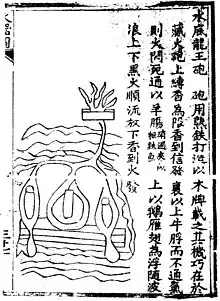 水底龍王砲 砲用熟鐵打造以木牌載之其機巧在於
藏火砲上縛香為限香到信發裹以牛脬而不通氣
則火悶死通以羊腸上以鵝雁翅為浮隨波
浪上下黑火順流放下香到火發